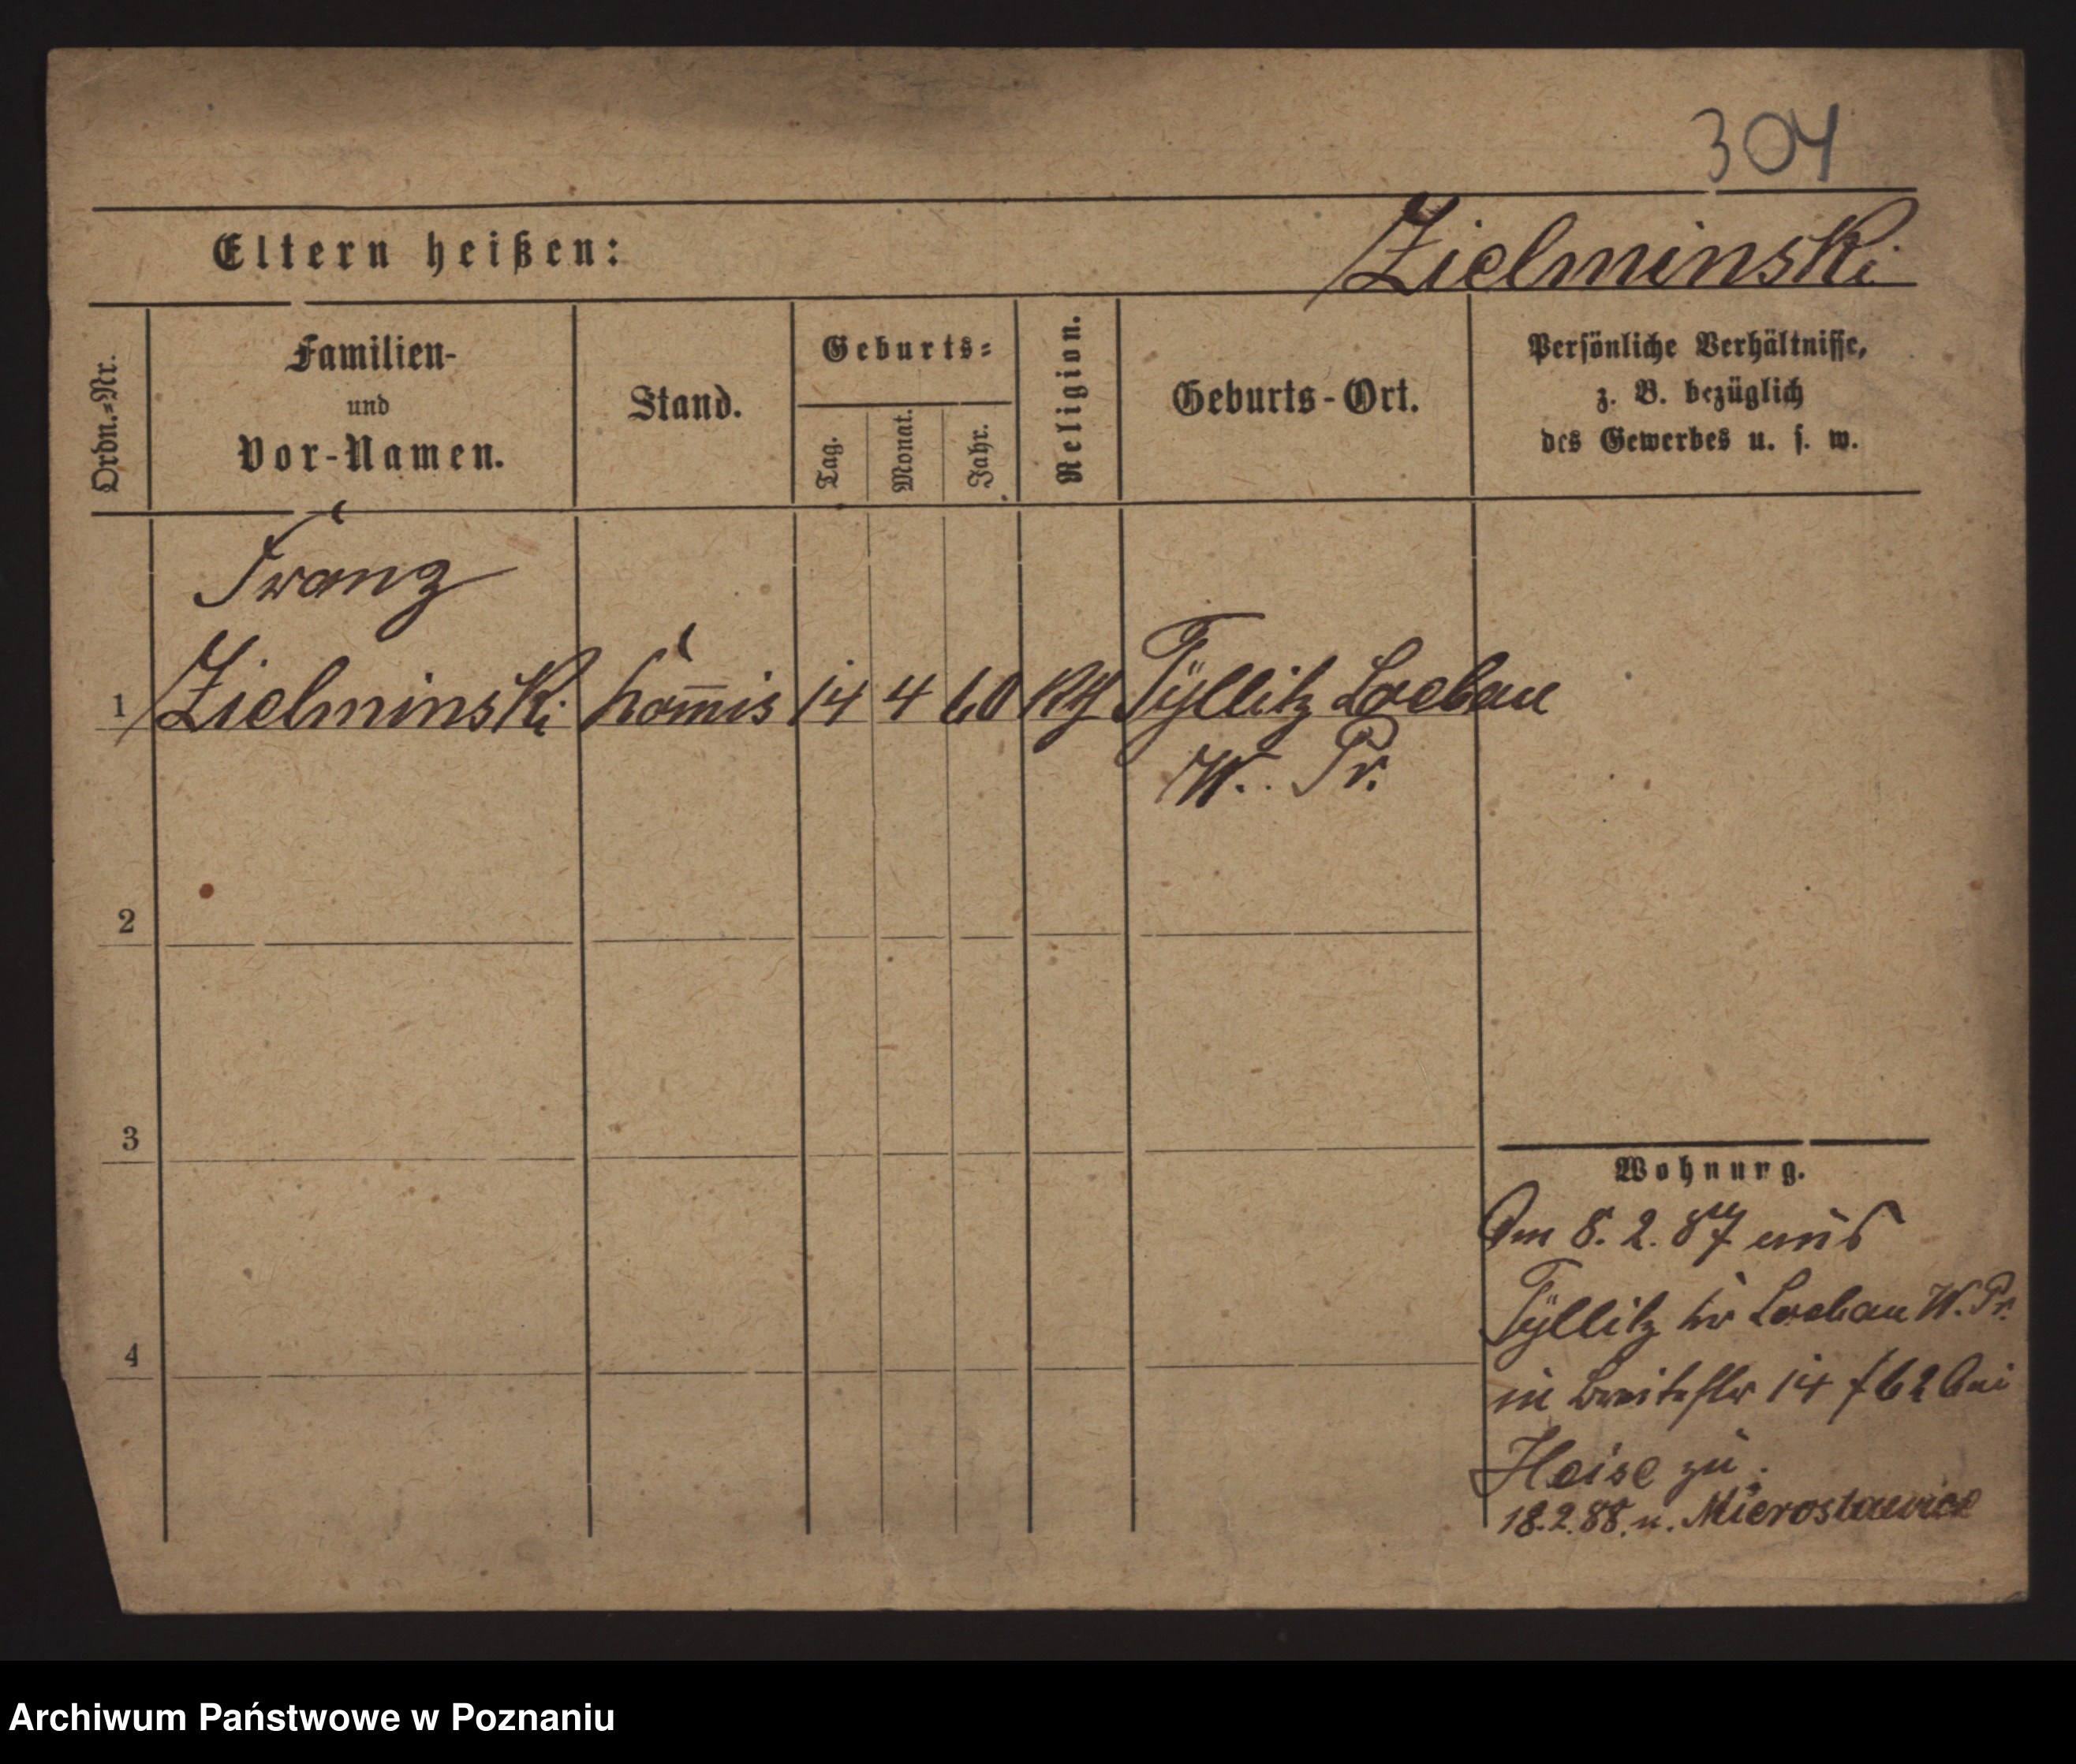 304
Eltern heißen:
Zielminski
Ordn.-Nr.
Familien-
und
Vor-Namen.
Stand.
Geburts-
Tag.
Monat.
Jahr.
Religion.
Geburts-Ort.
Persönliche Verhältnisse,
z. B. bezüglich
des Gewerbes u. s. w.
Franz
1 Zielminski Kom̅is 14 4 60 Kth Tÿllitz Loebau
W. Pr.
2
3
4
Wohnung.
Am 8. 2. 87 aus
Tÿllitz Loebau W. Pr.
in Breitestr 14/62 bei
Heise zu.
18.2.88. n. Mieroslawice
Archiwum Państwowe w Poznaniu